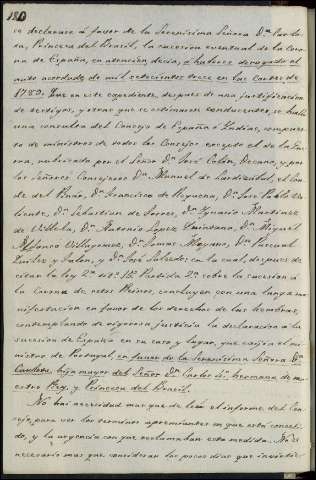 180
se declarase á favor de la Serenísima Señora Dª Carlo-
ta, Princesa del Brasil, la sucesion eventual de la Coro-
na de España, en atencion, decia, á haberse derogado el
auto acordado de mil setecientos trece en las Cortes de
1789. Que en este expediente, despues de una justificacion
de testigos, y otras que se estimaron conducentes, se halla
una consulta del Consejo de España é Indias, compues-
to de ministros de todos los Consejos excepto el de la Gue-
rra, rubricada por el Señor Dn. José Colon, Decano, y por
los Señores Consejeros Dn. Manuel de Lardizabal, el Con-
de del Pinár, Dn. Francisco de Requena, Dn. José Pablo Va-
liente, Dn. Sebastian de Torres, Dn. Ygnacio Martinez
de Villela, Dn. Antonio Lopez Quintana, Dn. Miguel
Alfonso Villagomez, Dn. Tomas Moyano, Dn. Pascual
Quilez y Talon, y Dn. José Salcedo: en la cual, despues de
citar la ley 2ª titº 15. Partida 2ª sobre la sucesion á
la Corona de estos Reinos, concluyen con una larga ma-
nifestacion en favor de los derechos de las hembras,
contemplando de rigorosa justicia la declaracion á la
sucesion de España en su caso y lugar, que exijia el mi-
nistro de Portugal, en favor de la Serenísima Señora Dª
Carlota, hija mayor del Señor Dn. Carlos 4º hermana de nu-
estro Rey, y Princesa del Brasil.
No hai necesidad mas que de leer el informe del Con-
sejo para ver los terminos apremiantes en que está conceb-
do, y la urgencia con que reclamaban esta medida. No es
necesario mas que considerar los pocos dias que invirtie-